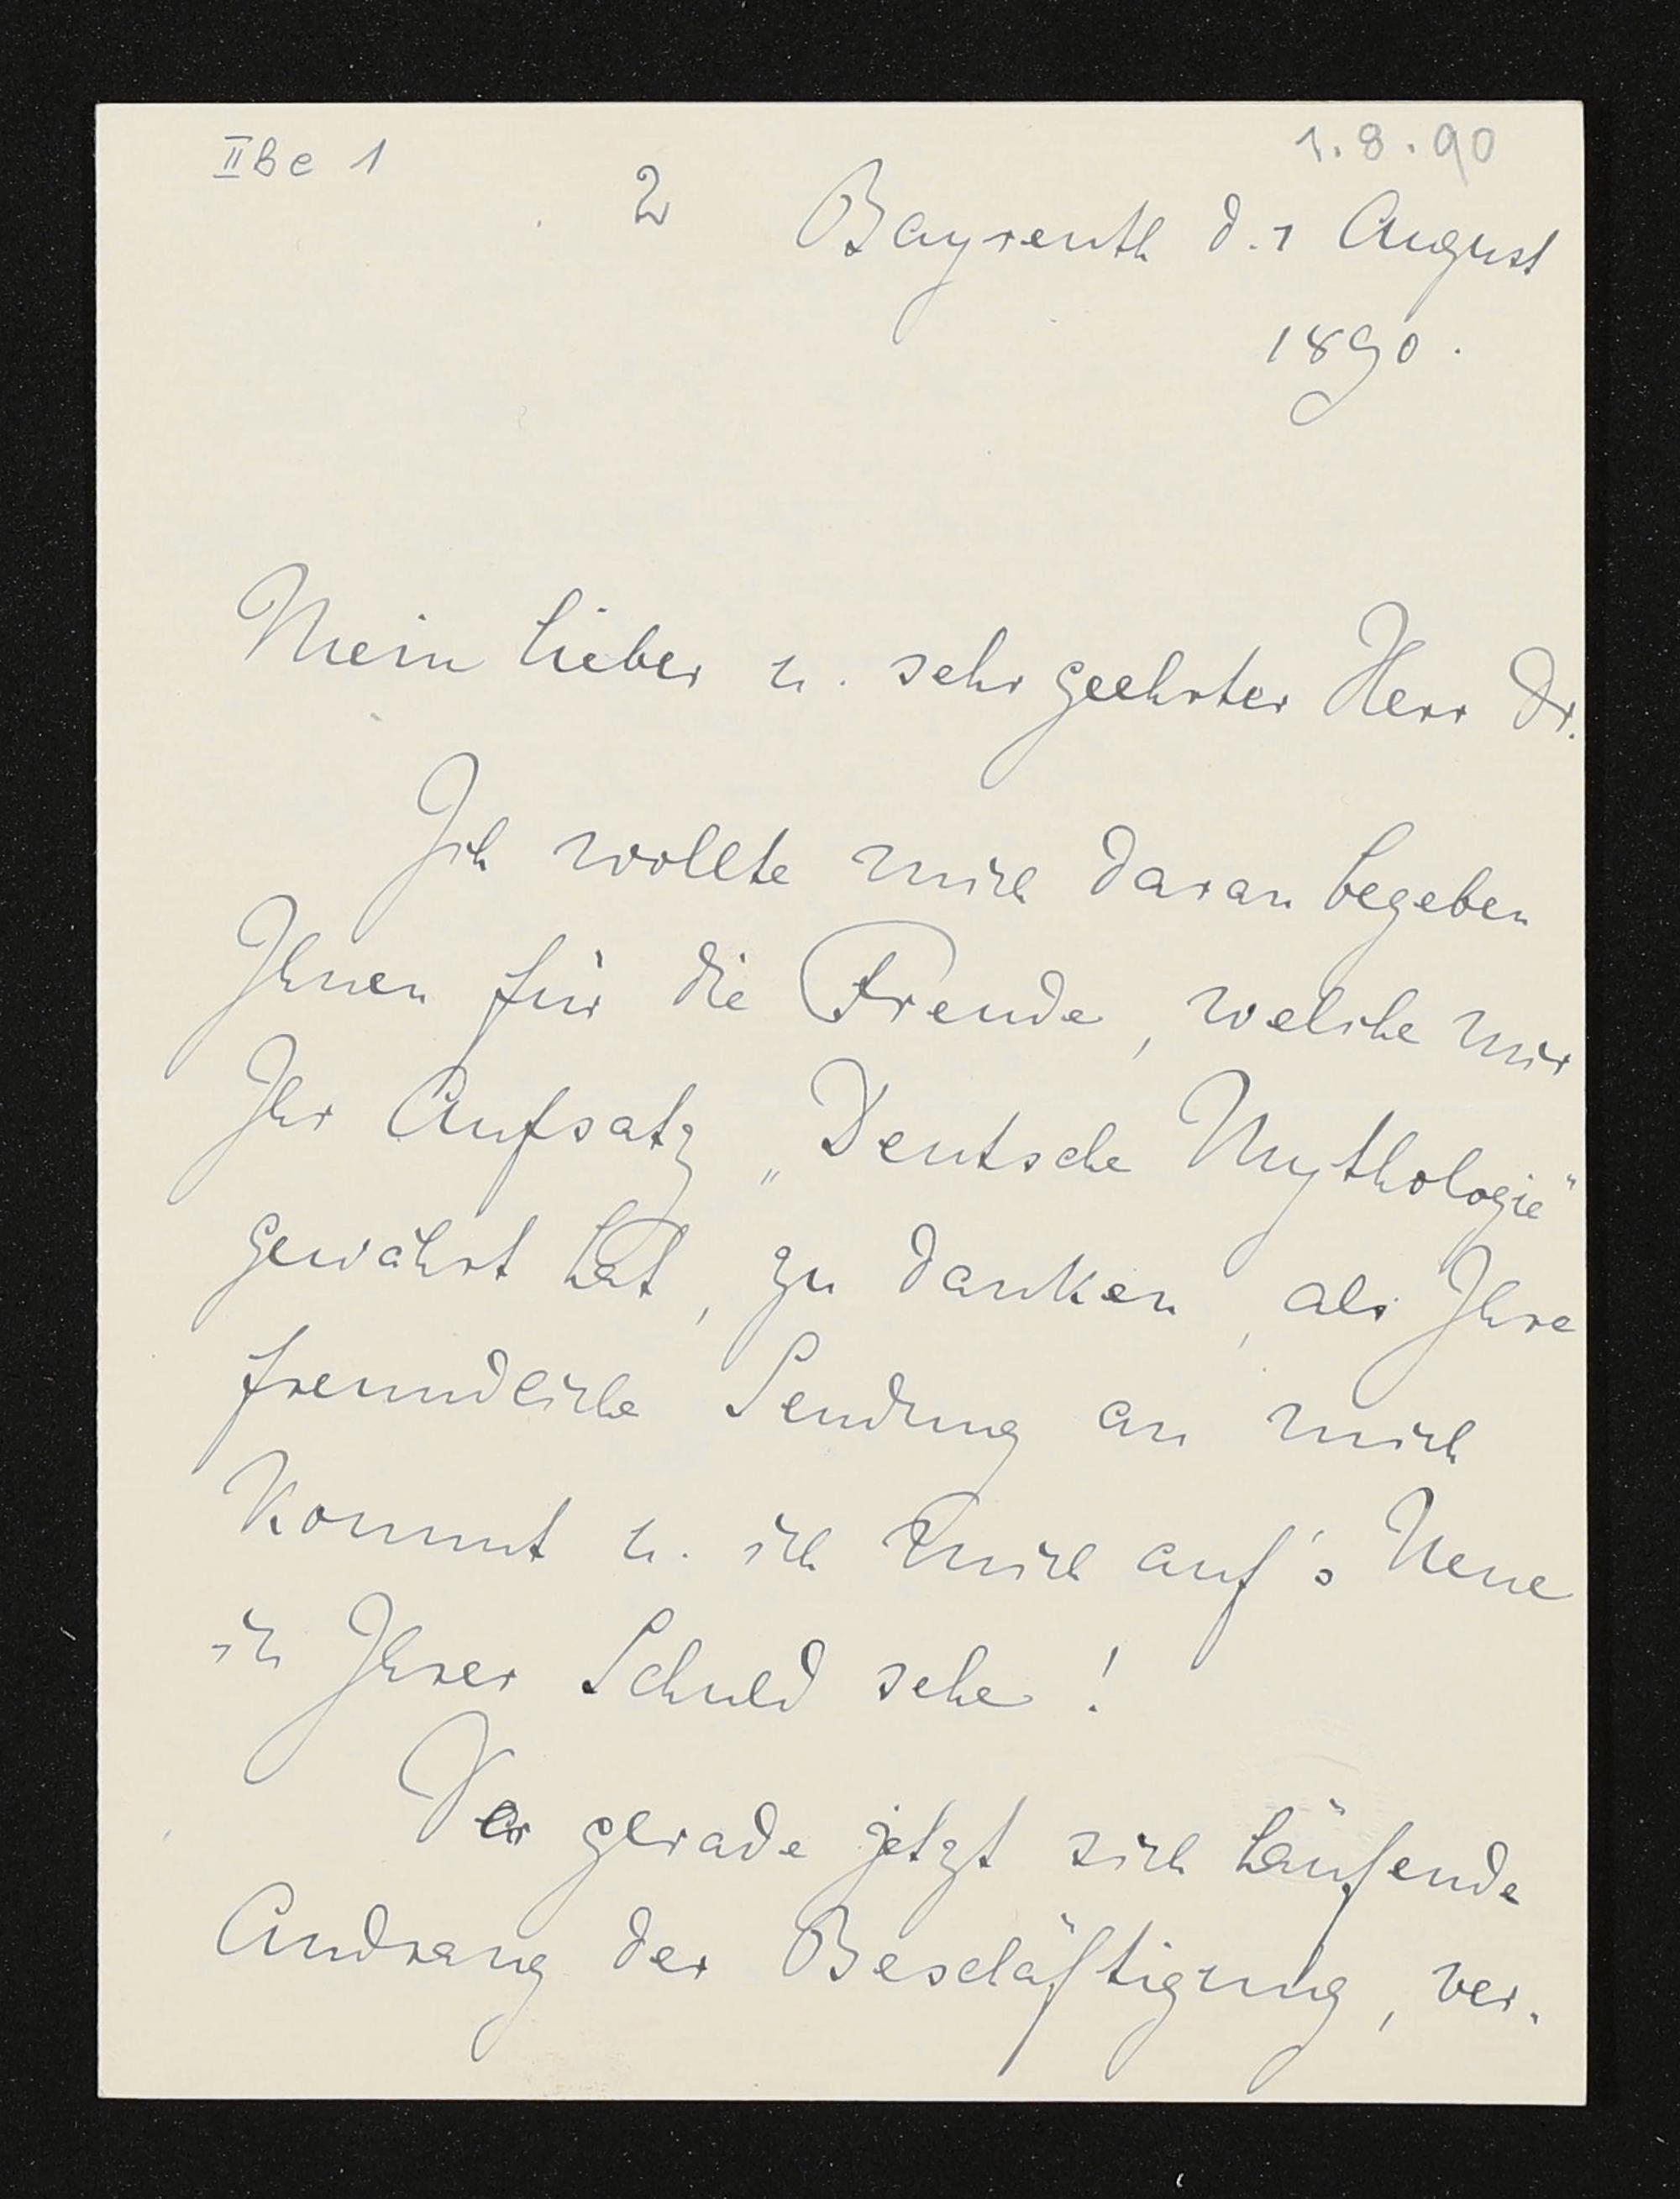 IIBe 1
1.8.90
2
Bayreuth d. 1 August
1890.
Mein lieber u. sehr geehrter Herr Dr.
Ich wollte mich daran begeben
Ihnen für die Freude, welche mir
Ihr Aufsatz „Deutsche Mythologie"
gewährt hat, zu danken, als Ihre
freundliche Sendung an mich
kommt u. ich mich auf's Neue
in Ihrer Schuld sehe!
Der gerade jetzt sich häufende
Andrang der Beschäftigung, ver-